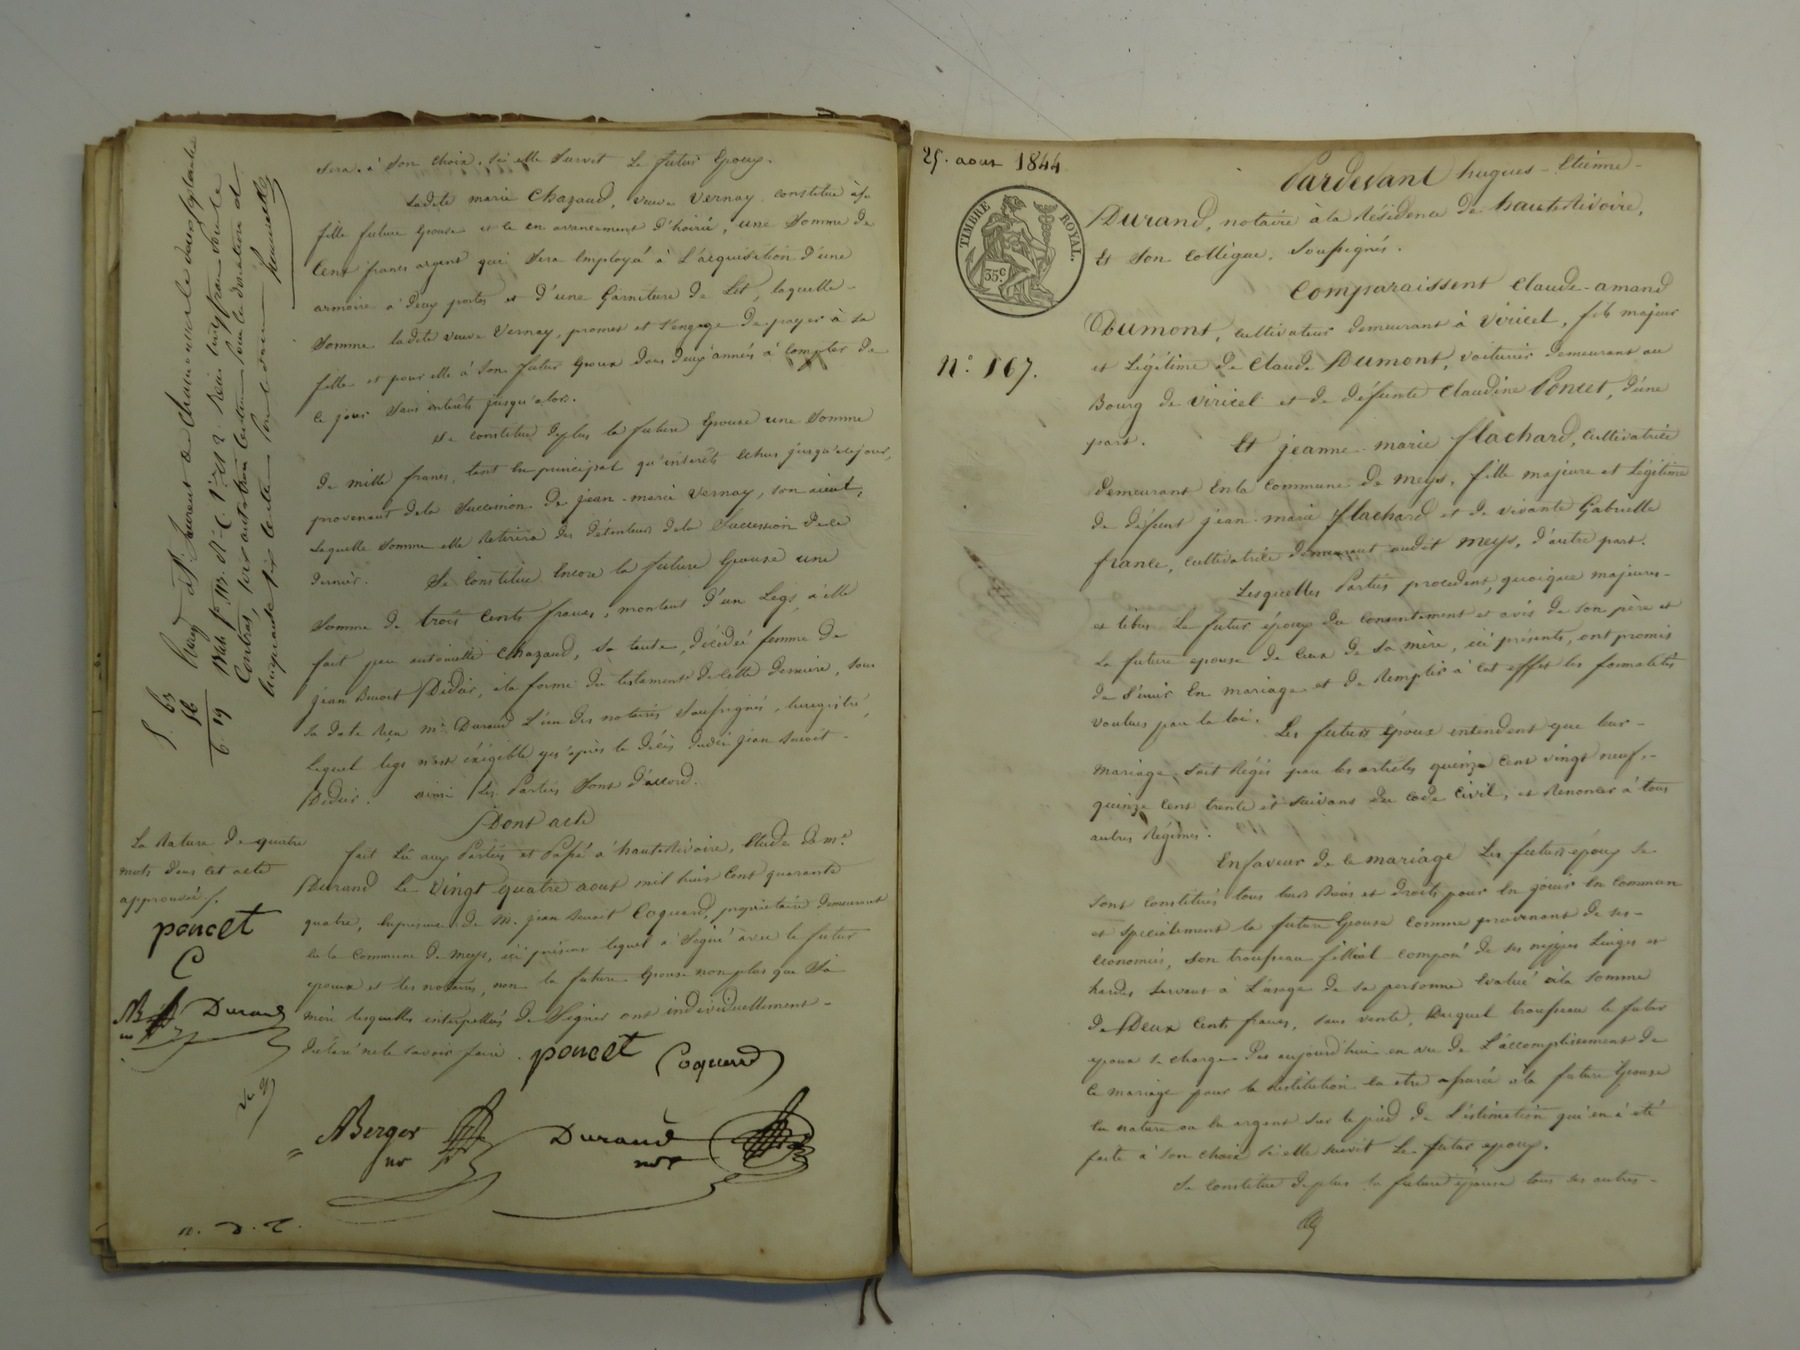 sera à son choix, si elle survit le futur époux.
Ladite marie Chazaud, veuve Vernay constitue à sa
fille future épouse et ce en avancement d'hoirie, une somme de
Cent francs argent qui sera employé à L'acquisition d'une
armoire à deux portes et d'une Garniture de Lit, laquelle-
Somme ladite veuve Vernay, promet et s'engage de payer à sa
fille et pour elle à son futur époux dans deux années à Compter de
ce jour sans intérêts jusqu'alors.
Se constitue deplus la future épouse une somme
de mille francs, tant en principal qu'interêts échus jusqu'à ce jour,
provenant dela Succession de jean-marie Vernay, son aieul,
Laquelle somme elle retirera des détenteurs dela Succession de ce
dernier. Se Constitue Encore la future épouse une
Somme de trois Cents francs, montant d'un Legs à elle
fait par antoinette Chazaud, sa tante, décédée femme de
jean Benoit Didier, à la forme du testament de cette dernière, sous
sa date reçu me. Durand L'un des notaires Soussignés, Enregistré,
Lequel legs n'est éxigible qu'après le décès dudit jean Benoit-
Didier. ainsi les Parties sont d'accord.
Dont acte
fait Lû aux Parties et Passé à hauterivoire, Etude de me.
Durand Le Vingt quatre aout mil huit Cent quarante
quatre, En présence de M. jean Benoit Coquard, propriétaire demeurant
en la Commune de meys, ici présent lequel a Signé avec le futur
époux et les notaires, non la future épouse non plus que sa
mère lesquelles interpellées de Signer ont individuellement-
déclaré ne le savoir faire. poncet Coquard
ABerger Durand
nre nore
S. 63
56
6. 19
La Rature de quatre
mots dans cet acte
approuvée.
poncet
C
AB Durand
n. d. c.
25. aout 1844
TIMBRE ROYAL.
35c
N°. 167.
Pardevant hugues-Etienne-
Durand, notaire à la Résidence de hauterivoire,
Et Son Collègue, Soussignés.
Comparaissent Claude-amand
Dumont, cultivateur demeurant à Viricel, fils majeur
et Légitime de Claude Dumont, voiturier demeurant au
Bourg de Viricel et de défunte Claudine Poncet, d'une
part. Et jeanne-marie flachard, Cultivatrice
demeurant En la Commune de meys, fille majeure et Légitime
de défunt jean-marie flachard et de vivante Gabrielle
france, cultivatrice demeurant audit meys, d'autre part.
Lesquelles Parties procédent, quoique majeures-
et libres Le futur époux du consentement et avis de son père et
La future épouse de Ceux de Sa mère, ici présents, ont promis
de S'unir En mariage et de Remplir à Cet effet les formalités
voulues par la loi. Les futurs époux entendent que leur-
mariage soit Régis par les articles quinze Cent vingt neuf,-
quinze cent trente et suivans du Code Civil, et Renoncer à tous
autres Régimes.
En faveur de ce mariage Les futurs époux se
sont constitués tous leurs Biens et droits pour En jouir En Commun
et spécialement la future épouse comme provenant de ses-
économies, son trousseau filial composé de ses nippes Linges et
hardes servant à L'usage de sa personne Evalué à la somme
de Deux Cents francs, sans vente, Duquel trousseau le futur
époux se charge dès aujourd'hui en vue de L'accomplissement de
ce mariage pour la restitution En être opérée à la future épouse
En nature ou En argent sur le pied de L'éstimation qui en a été
faite à son choix si elle survit Le futur époux.
Se constitue deplus la future épouse tous ses autres-